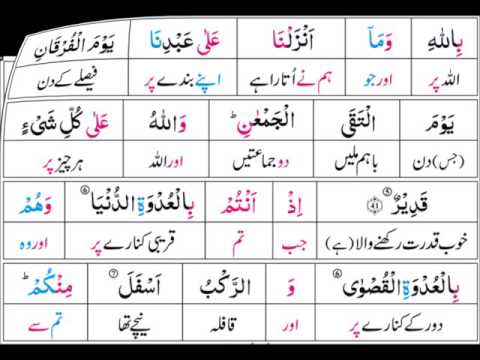 بِاللّٰهِ وَمَاۤ اَنْزَلْنَا عَلٰى عَبْدِنَا يَوْمَ الْفُرْقَانِ
اللہ پر اور جو ہم نے اُتارا ہے اپنے بندے پر فیصلے کے دن
يَوْمَ الْتَقَى الْجَمْعٰنِ ؕ وَاللّٰهُ عَلٰى كُلِّ شَیْءٍ
(جس) دن باہم ملیں دو جماعتیں اور اللہ ہر چیز پر
قَدِيْرٌ ۴۱ اِذْ اَنْتُمْ بِالْعُدْوَةِ الدُّنْيَا وَهُمْ
خوب قدرت رکھنے والا (ہے) جب تم قریبی کنارے پر اور وہ
بِالْعُدْوَةِ الْقُصْوٰى وَ الرَّكْبُ اَسْفَلَ مِنْكُمْ ؕ
دور کے کنارے پر اور قافلہ نیچے تھا تم سے